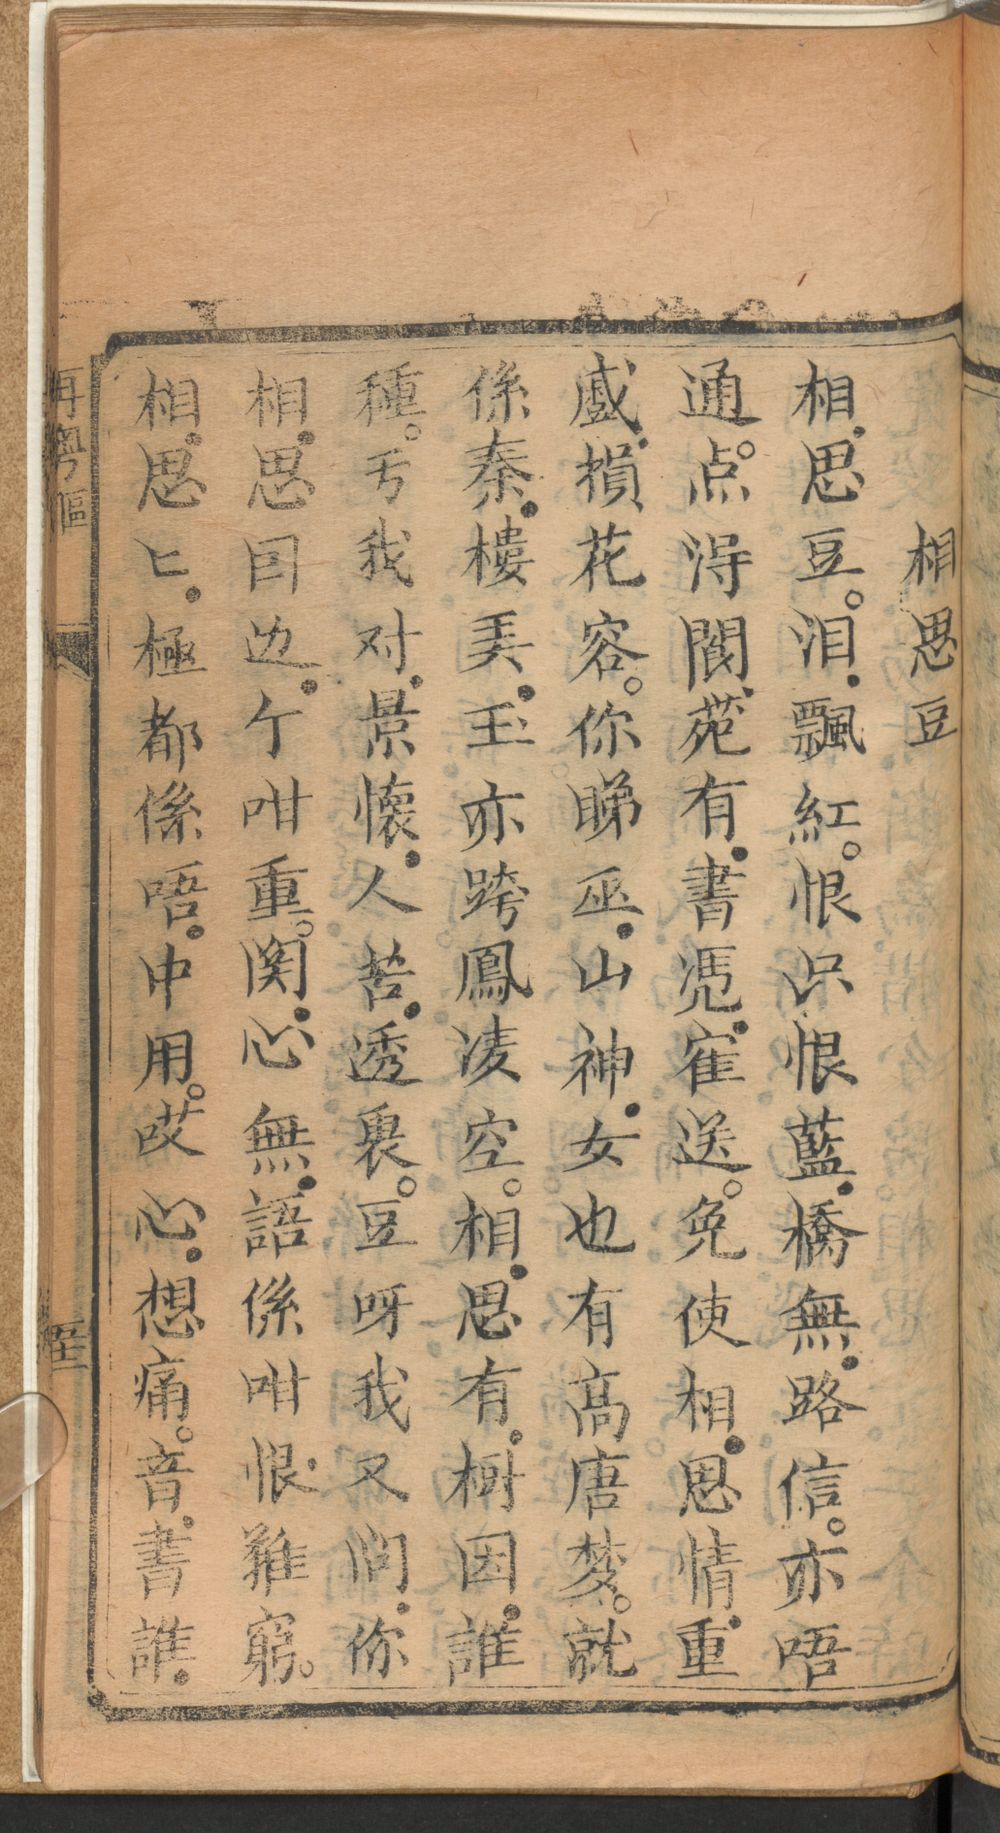 相思豆
相思豆。泪飄紅。恨只恨藍橋無路信。亦唔
通。点得閬苑有書凴寉送。免使相思情重
慼損花容。你睇巫山神女也有高唐梦。就
係秦樓美玉亦跨鳳凌空。相思有樹因誰
種。亏我对景懷人苦透裏。豆呀我又问你
相思因边个咁重。関心無語係咁恨难窮。
相思匕極都係唔中用。㰟心想痛。音書誰
再粤謳